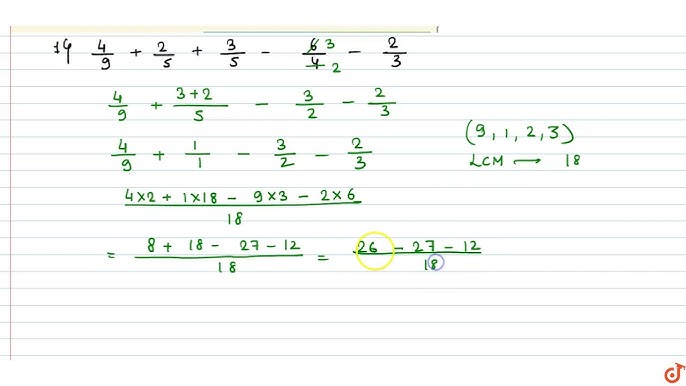 14 4/9 + 2/5 + 3/5 - 6/4 3 2 - 2/3
4/9 + 3+2/5 - 3/2 - 2/3
(9, 1, 2, 3)
4/9 + 1/1 - 3/2 - 2/3
LCM → 18
4×2 + 1×18 - 9×3 - 2×6 / 18
= 8 + 18 - 27 - 12 / 18 = 26 - 27 - 12 / 18